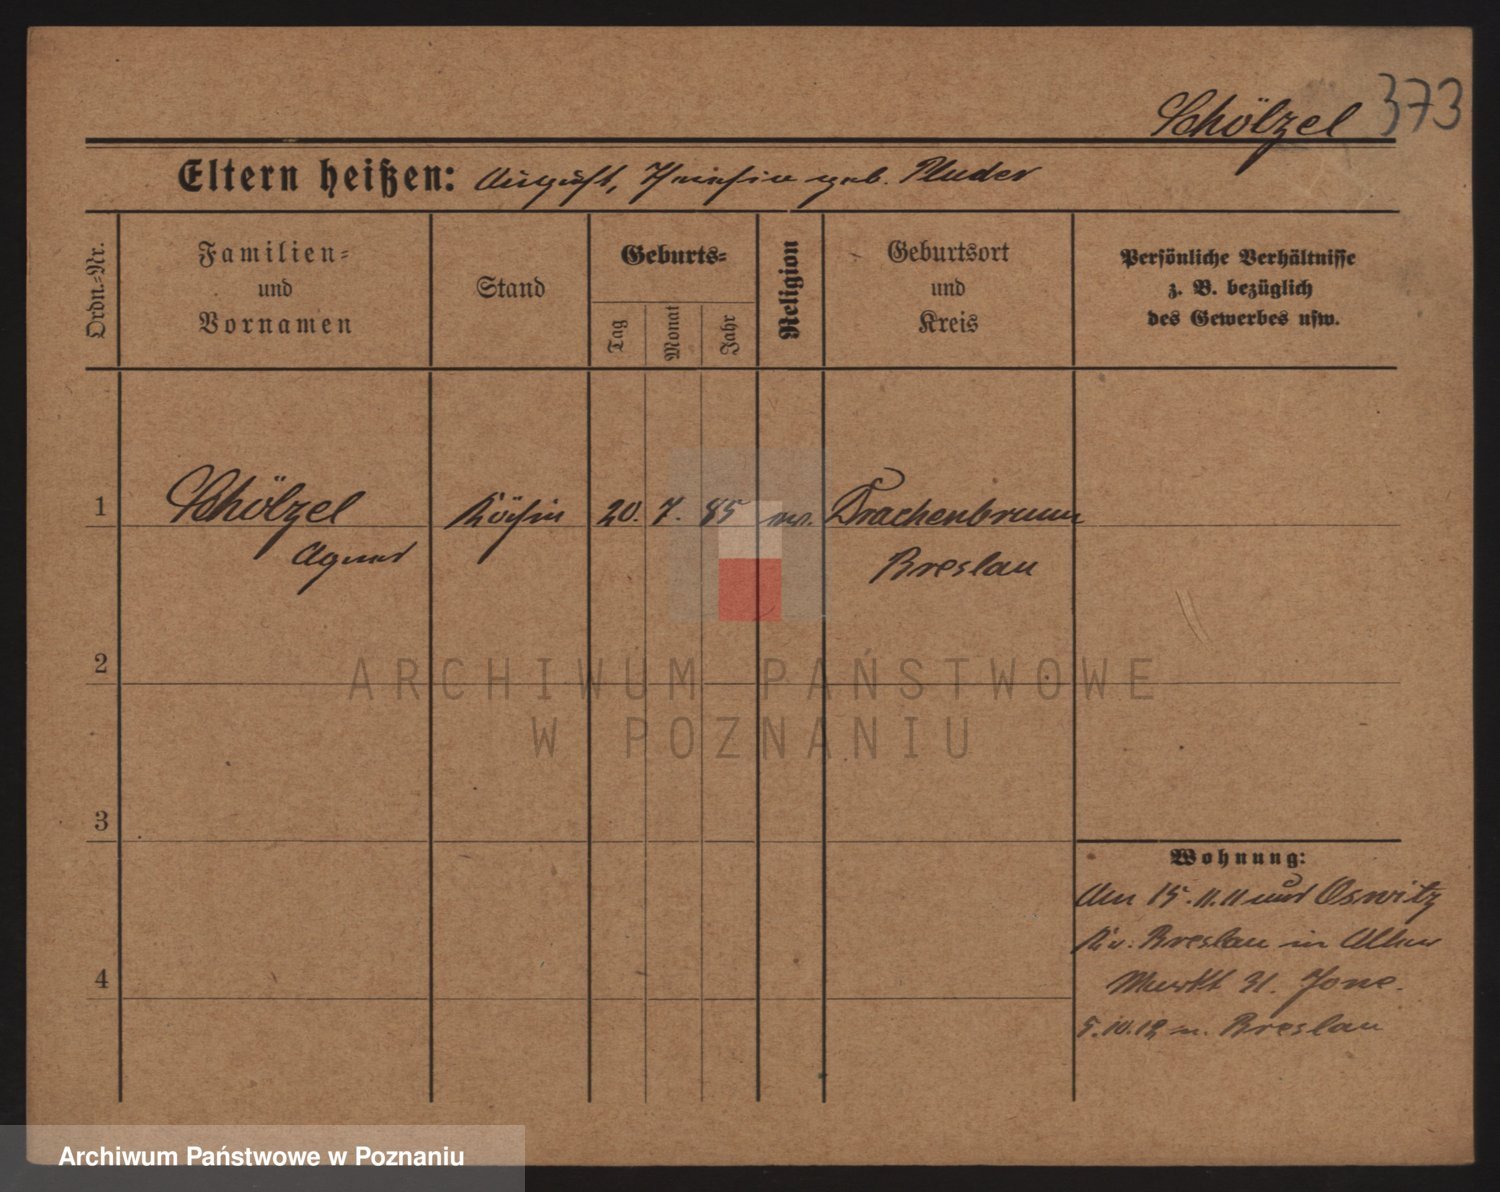 Schölzel 373
Eltern heißen: August, geb. Pluder
Ordn.-Nr.
Familien-
und
Vornamen
Stand
Geburts-
Tag
Monat
Jahr
Religion
Geburtsort
und
Kreis
Persönliche Verhältnisse
z. B. bezüglich
des Gewerbes usw.
1 Schölzel Köchin 20. 7. 85 Drachenbrunn
Agnes Breslau
2
ARCHIWUM PAŃSTWOWE
W POZNANIU
3
Wohnung:
Am 15.11.11 Oswitz
Kr. Breslau in Alter
4
Markt 31.
5.10.12 n. Breslau
Archiwum Państwowe w Poznaniu